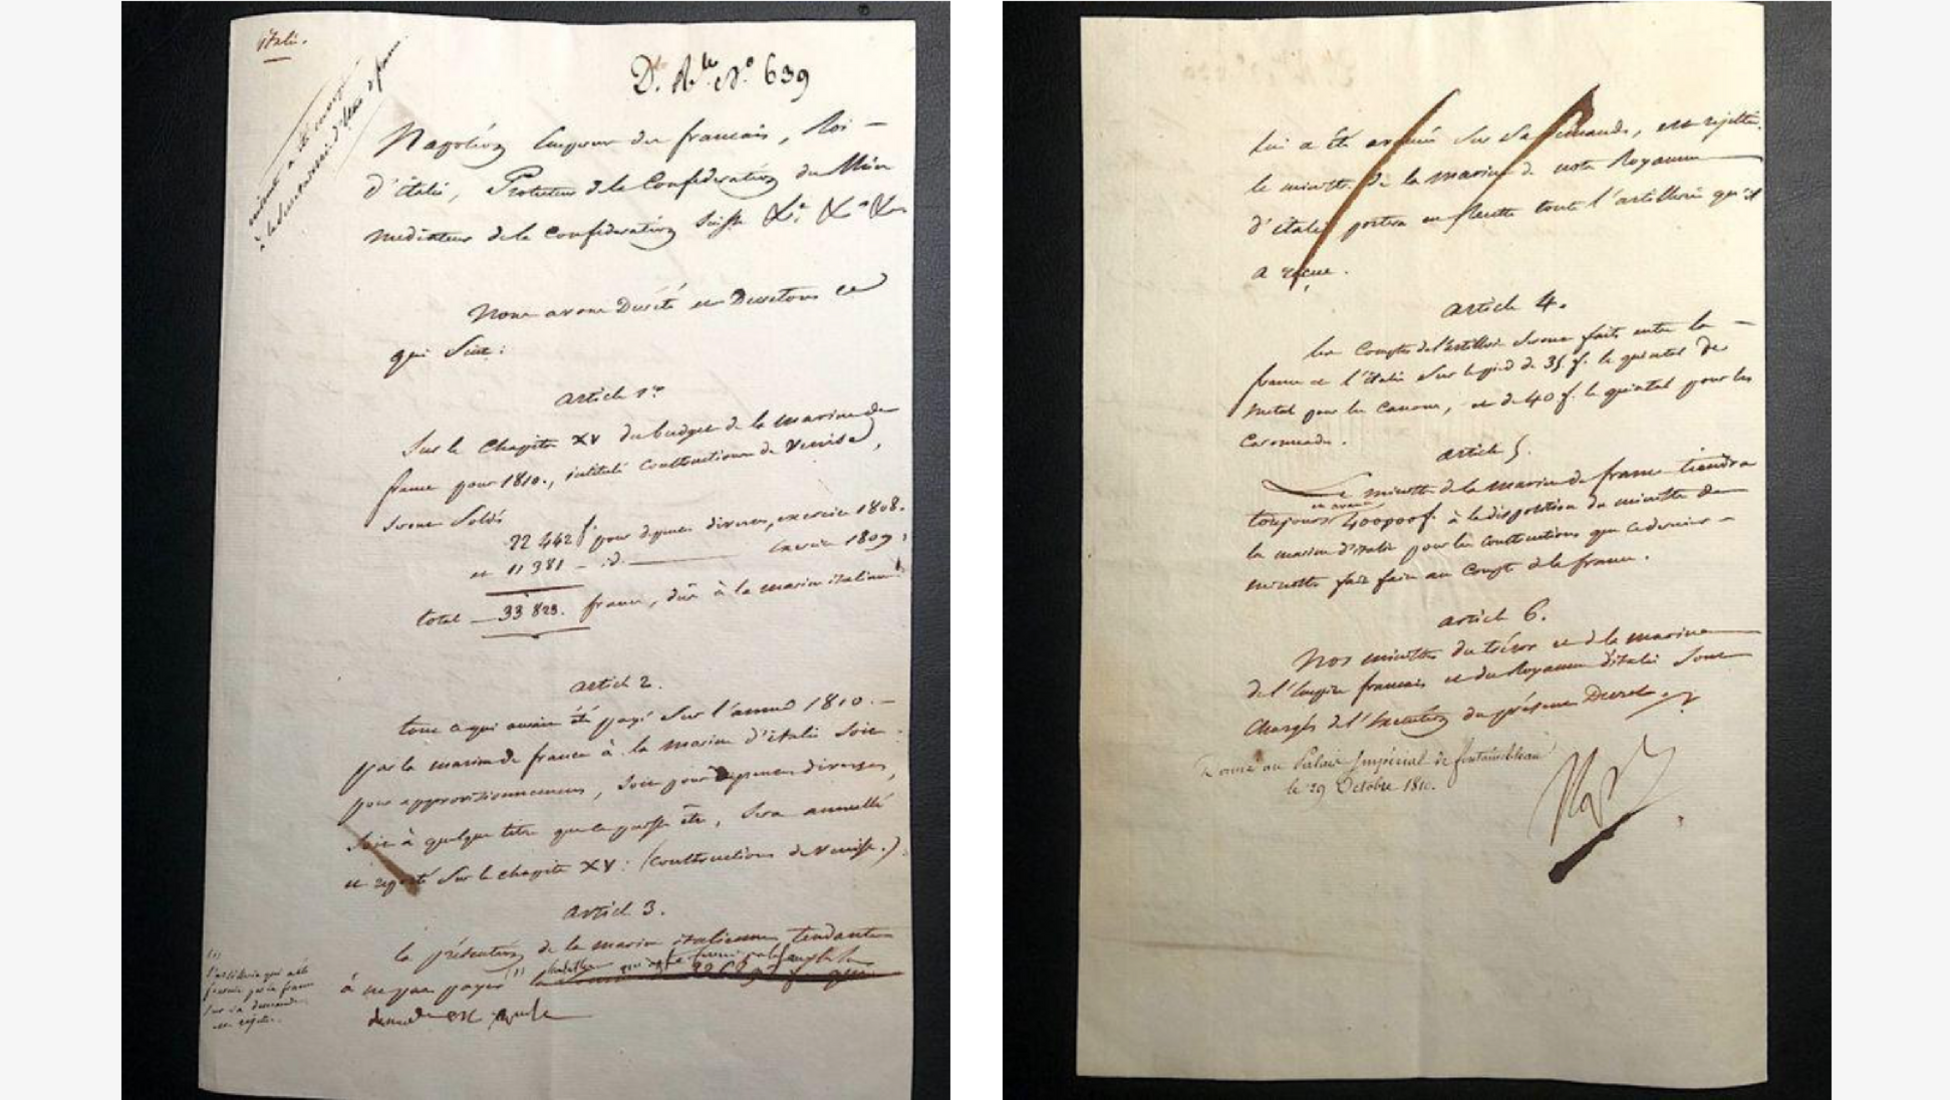 italie.
à la secrétairerie d'état de france
D.t R.le N.o 639
Napoléon Empereur des francais, Roi –
d'italie, Protecteur de la Confédération du Rhin
médiateur de la Confédération Suisse &.a &.a &.a
Nous avons Décrété et Décretons ce
qui Suit :
article 1.er
Sur le Chapitre XV du budget de la marine de
france pour 1810., intitulé Constructions de Venise,
seront soldés
22 442 f pour dépenses diverses, exercice 1808.
et 11 381 – id. — Exercice 1809.
total — 33 823. francs, dûs à la marine italienne.
article 2.
tout ce qui aurait été payé sur l'année 1810. –
par la marine de france à la marine d'italie soit
pour approvisionnemens, soit pour dépenses diverses,
soit à quelque titre que ce puisse être, sera annullé
et reporté sur le chapitre XV : (Constructions de Venise.)
article 3.
la prétention de la marine italienne tendante
à ne pas payer (1)
demande est
(1)
l'artillerie qui a été
fournie par la france
sur sa demande
est rejetée.
lui a été sur sa demande, est rejettée.
le ministre de la marine de notre Royaume
d'italie portera en recette toute l'artillerie qu'il
a reçue.
article 4.
les Comptes de l'artillerie seront faits entre la –
france et l'italie sur le pied de 35 f. le quintal de
métal pour les canons, et de 40 f. le quintal pour les
caronades.
article 5.
Le ministre de la marine de france tiendra
en avance
toujours 400000 f. à la disposition du ministre de
la marine d'italie pour les constructions que ce dernier –
ministre fait faire au compte de la france.
article 6.
Nos ministres du trésor et de la marine
de l'Empire francais et du Royaume d'italie sont
chargés de l'Exécution du présent Décret.
Donné au Palais Impérial de fontainebleau
le 29 Octobre 1810.
Nap